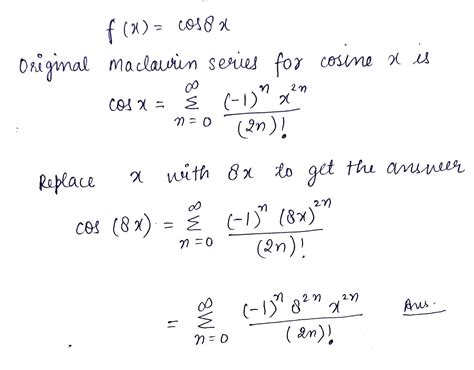 f(x) = cos8x
Original maclaurin series for cosine x is
cos x = ∞ Σ n=0 (-1)^n x^2n / (2n)!
Replace x with 8x to get the answer
cos (8x) = ∞ Σ n=0 (-1)^n (8x)^2n / (2n)!
= ∞ Σ n=0 (-1)^n 8^2n x^2n / (2n)! Ans.